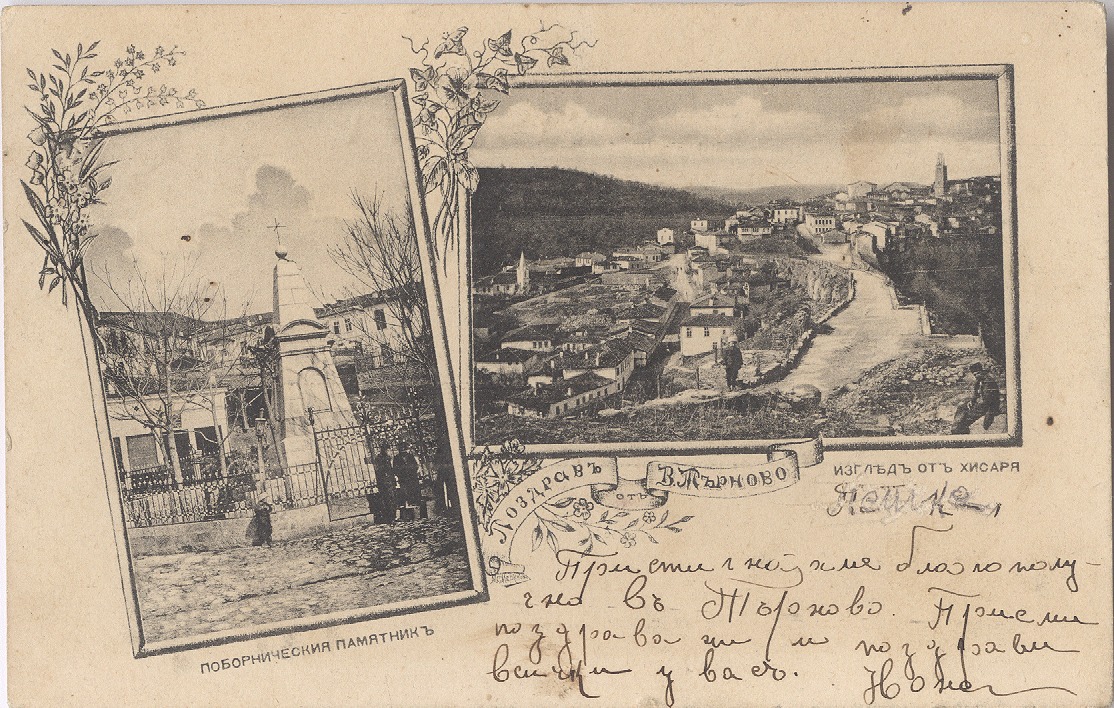 Поздравъ отъ В. Търново
ИЗГЛѢДЪ ОТЪ ХИСАРЯ
Пешке,
Пристигнахме благополу-
чно въ Търново. Приеми
поздрава ни и поздрави
всички у васъ.
ПОБОРНИЧЕСКИЯ ПАМЯТНИКЪ